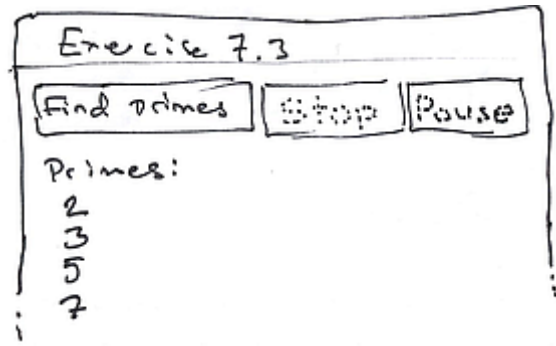 Exercise 7.3
Find primes Stop Pause
Primes:
2
3
5
7